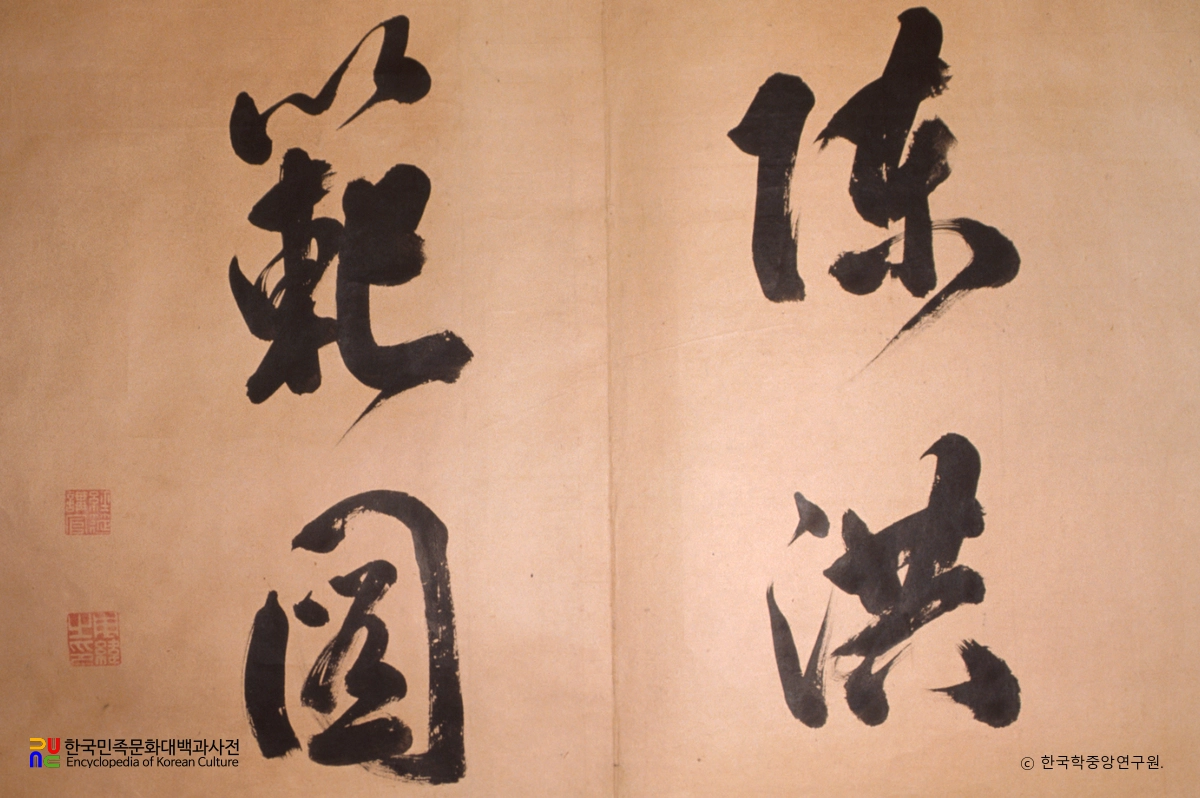 陳洪
範圖
한국민족문화대백과사전
Encyclopedia of Korean Culture
ⓒ 한국학중앙연구원.